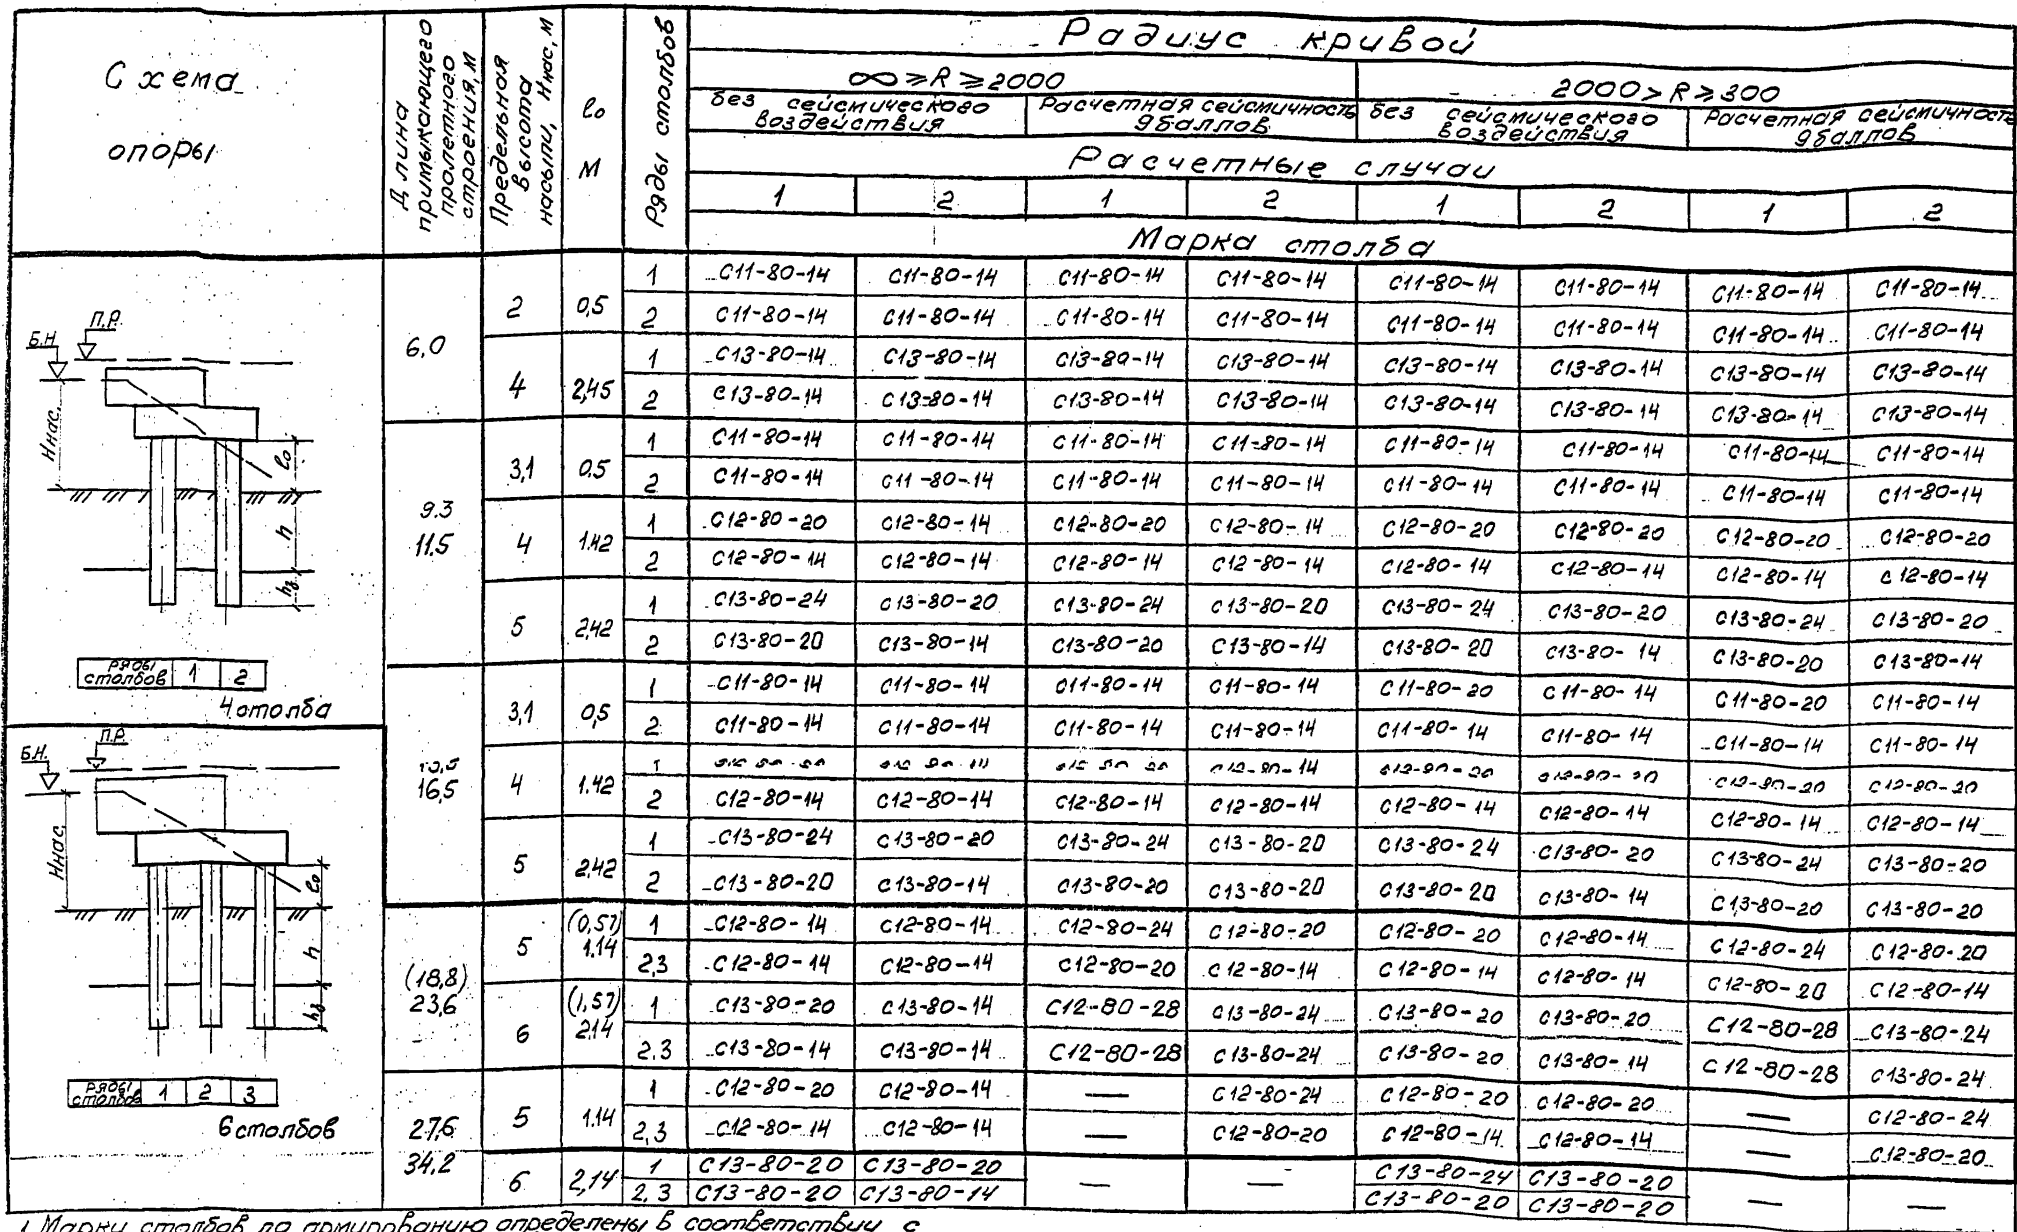 Схема опоры
Длина примыкающего пролетного строения, м
Предельная высота насыпи, Ннас, м
lо м
Ряды столбов
Радиус кривой
∞ ≥ R ≥ 2000
2000 > R ≥ 300
без сейсмического воздействия
Расчетная сейсмичность 9 баллов
без сейсмического воздействия
Расчетная сейсмичность 9 баллов
Расчетные случаи
1 2 1 2 1 2 1 2
Марка столба
6,0
2 0,5 1 С11-80-14 С11-80-14 С11-80-14 С11-80-14 С11-80-14 С11-80-14 С11-80-14 С11-80-14
2 С11-80-14 С11-80-14 С11-80-14 С11-80-14 С11-80-14 С11-80-14 С11-80-14 С11-80-14
4 2,45 1 С13-80-14 С13-80-14 С13-80-14 С13-80-14 С13-80-14 С13-80-14 С13-80-14 С13-80-14
2 С13-80-14 С13-80-14 С13-80-14 С13-80-14 С13-80-14 С13-80-14 С13-80-14 С13-80-14
9.3
11.5
3,1 0.5 1 С11-80-14 С11-80-14 С11-80-14 С11-80-14 С11-80-14 С11-80-14 С11-80-14 С11-80-14
2 С11-80-14 С11-80-14 С11-80-14 С11-80-14 С11-80-14 С11-80-14 С11-80-14 С11-80-14
4 1.42 1 С12-80-20 С12-80-14 С12-80-20 С12-80-14 С12-80-20 С12-80-20 С12-80-20 С12-80-20
2 С12-80-14 С12-80-14 С12-80-14 С12-80-14 С12-80-14 С12-80-14 С12-80-14 С12-80-14
5 2,42 1 С13-80-24 С13-80-20 С13-80-24 С13-80-20 С13-80-24 С13-80-20 С13-80-24 С13-80-20
2 С13-80-20 С13-80-14 С13-80-20 С13-80-14 С13-80-20 С13-80-14 С13-80-20 С13-80-14
16,5
3,1 0,5 1 С11-80-14 С11-80-14 С11-80-14 С11-80-14 С11-80-20 С11-80-14 С11-80-20 С11-80-14
2 С11-80-14 С11-80-14 С11-80-14 С11-80-14 С11-80-14 С11-80-14 С11-80-14 С11-80-14
4 1.42 1 С12-80-14 С12-80-20 С12-80-20 С12-80-20
2 С12-80-14 С12-80-14 С12-80-14 С12-80-14 С12-80-14 С12-80-14 С12-80-14 С12-80-14
5 2,42 1 С13-80-24 С13-80-20 С13-80-24 С13-80-20 С13-80-24 С13-80-20 С13-80-24 С13-80-20
2 С13-80-20 С13-80-14 С13-80-20 С13-80-20 С13-80-20 С13-80-14 С13-80-20 С13-80-20
(18,8)
23,6
5 (0,57) 1.14 1 С12-80-14 С12-80-14 С12-80-24 С12-80-20 С12-80-20 С12-80-14 С12-80-24 С12-80-20
2,3 С12-80-14 С12-80-14 С12-80-20 С12-80-14 С12-80-14 С12-80-14 С12-80-20 С12-80-14
6 (1,57) 2.14 1 С13-80-20 С13-80-14 С12-80-28 С13-80-24 С13-80-20 С13-80-20 С12-80-28 С13-80-24
2,3 С13-80-14 С13-80-14 С12-80-28 С13-80-24 С13-80-20 С13-80-14 С12-80-28 С13-80-24
27,6
34,2
5 1.14 1 С12-80-20 С12-80-14 — С12-80-24 С12-80-20 С12-80-20 — С12-80-24
2,3 С12-80-14 С12-80-14 — С12-80-20 С12-80-14 С12-80-14 — С12-80-20
6 2,14 1 С13-80-20 С13-80-20 — — С13-80-24 С13-80-20 — —
2,3 С13-80-20 С13-80-14 С13-80-20 С13-80-20
Б.Н. П.Р.
Ннас.
lо
h
hв
Ряды столбов 1 2
4 столба
Б.Н. П.Р.
Ннас.
lо
h
hв
Ряды столбов 1 2 3
6 столбов
1 Марки столбов по армированию определены в соответствии с